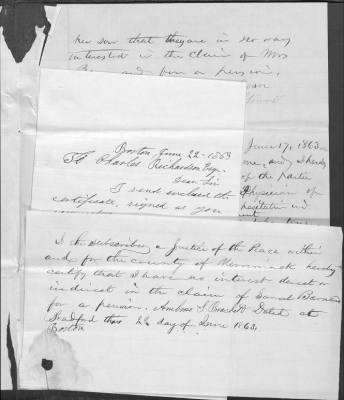 her son that they are in no way
interested in the claim of Mrs
for a pension,
June 17, 1863
one, and I hereby
of the parties
Physician of
Boston June 22 - 1863
To Charles Richardson Esq.
Dear Sir
I send enclosed the
certificate, signed as you
I the subscriber a Justice of the Peace within
and for the county of Merrimack hereby
certify that I have no interest direct or
indirect in the claim of Barnes
for a pension. Ambrose Dated at
Bradford this 22 day of June 1863.
Boston